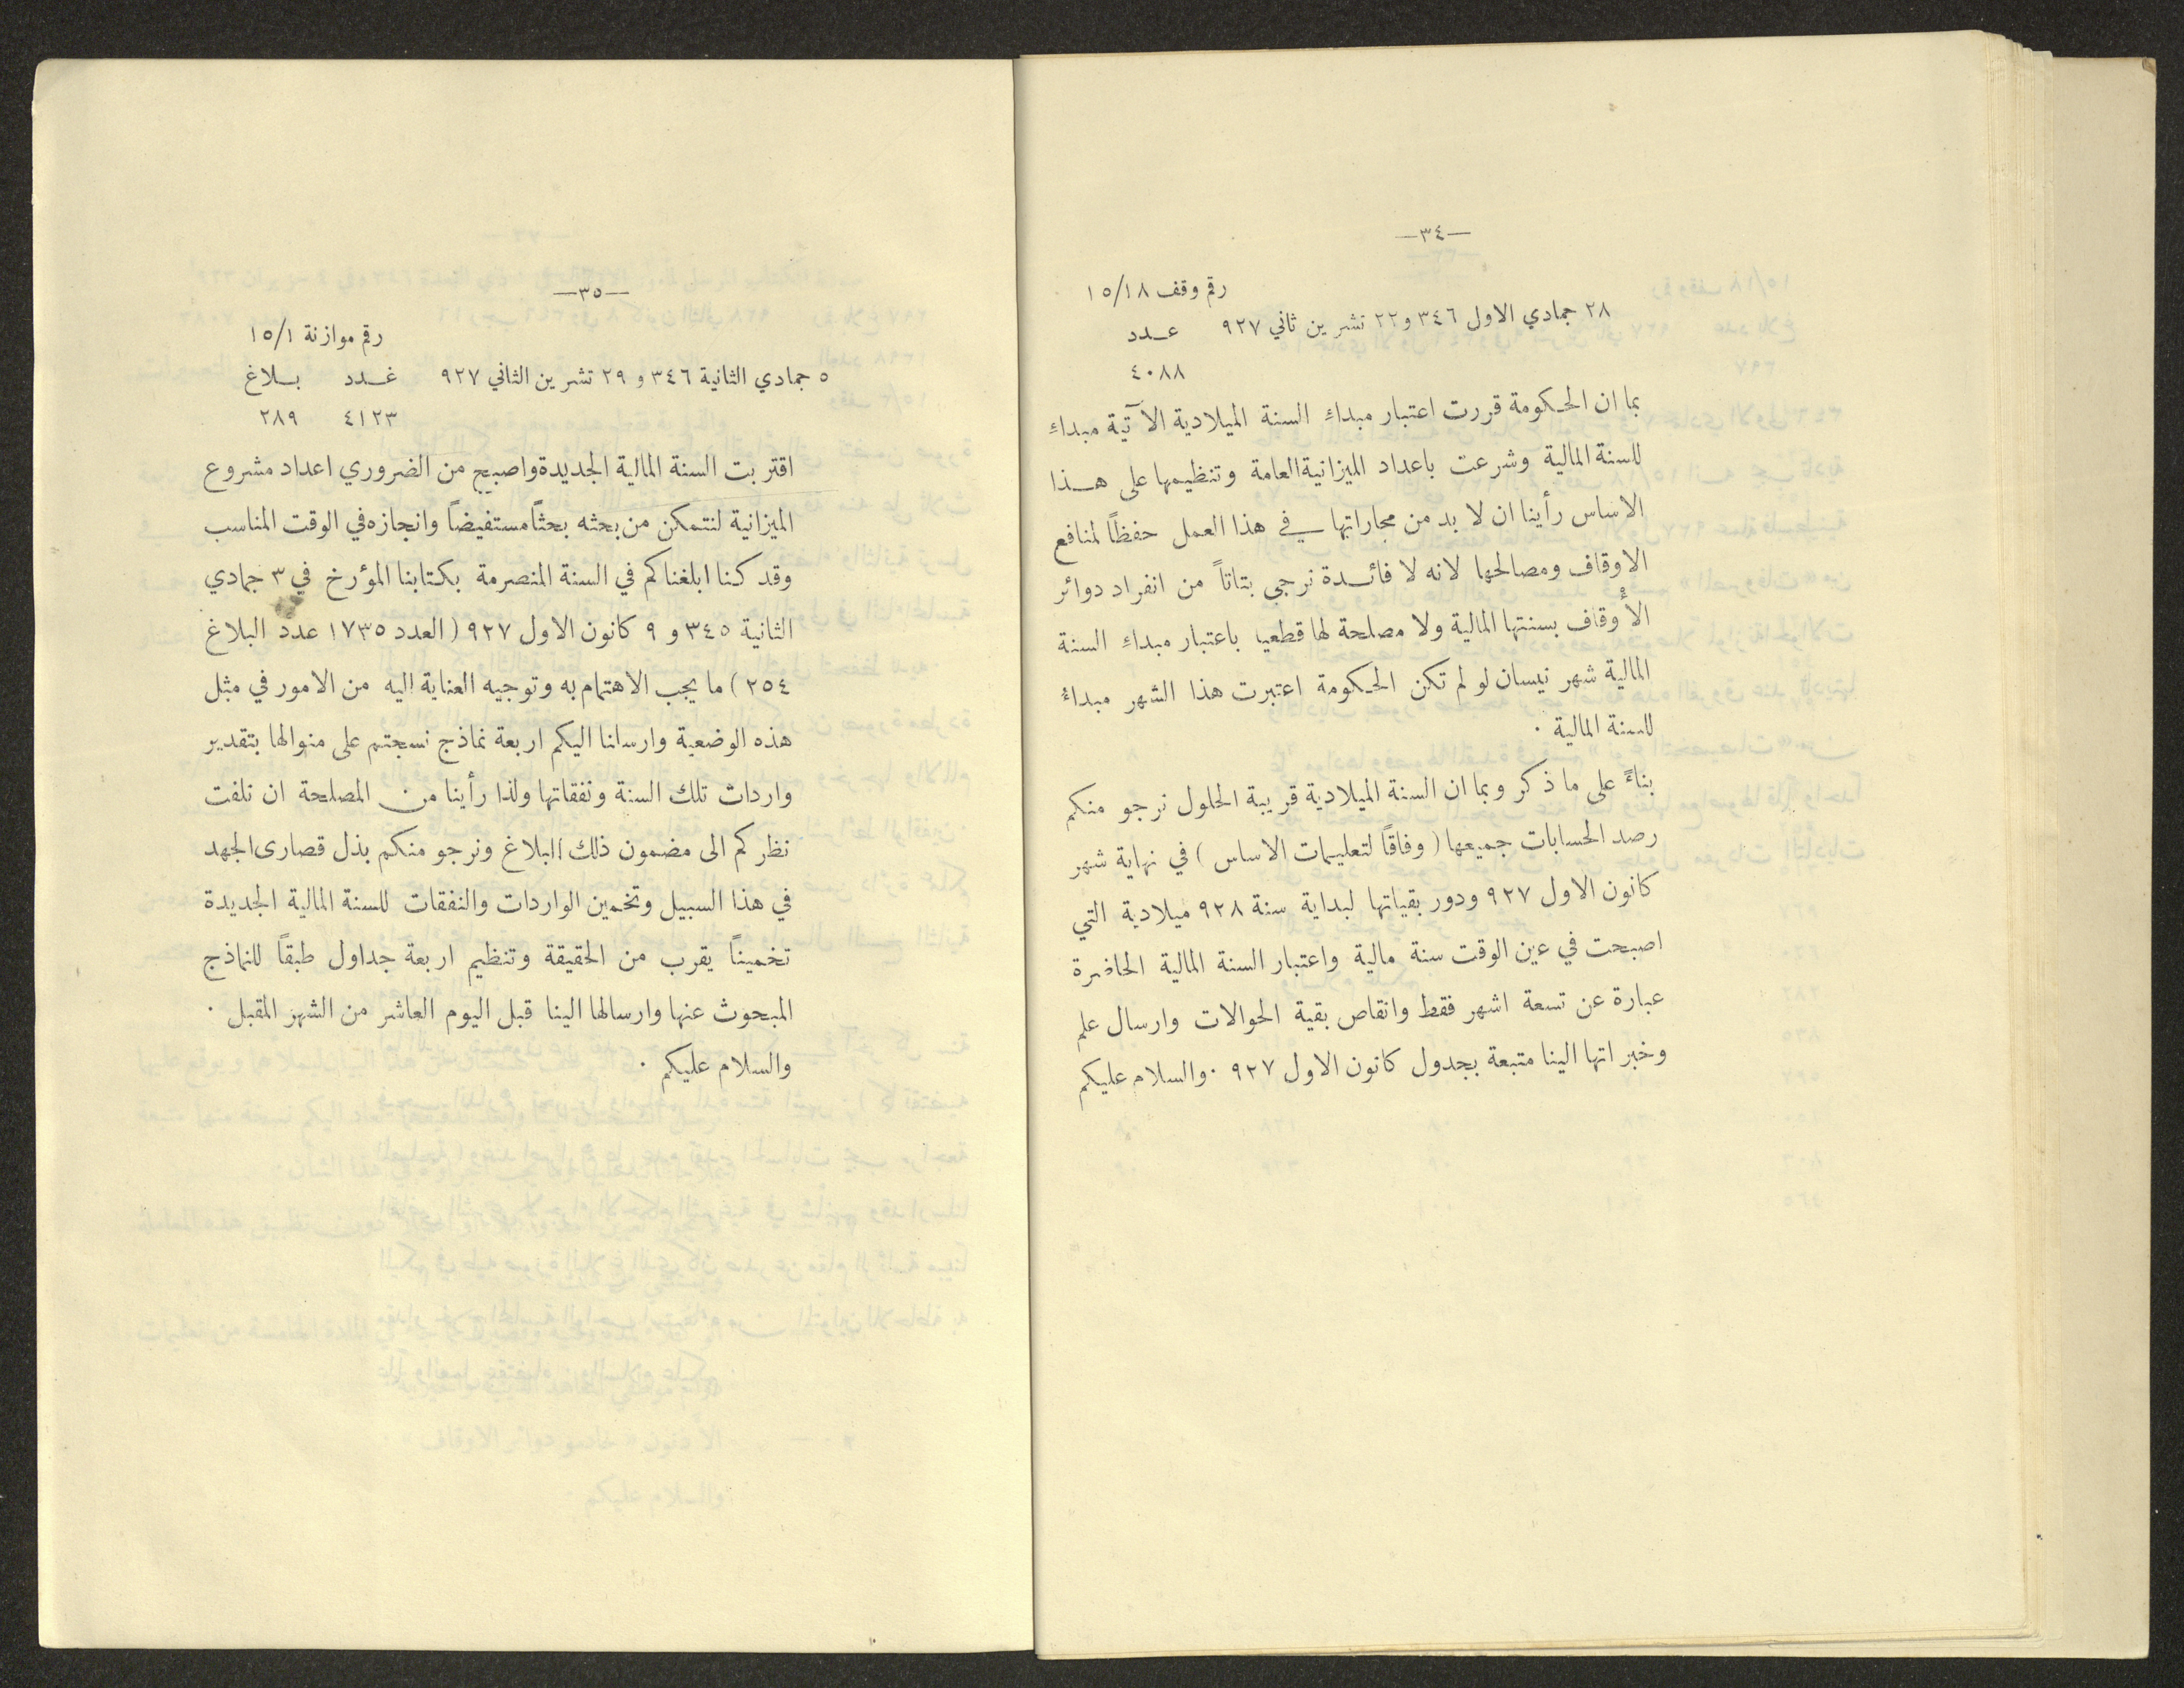 —٣٤—
رقم وقف ١٥/١٨
٢٨ جمادي الاول ٣٤٦ و٢٢ تشرين ثاني ٩٢٧ عـدد
٤٠٨٨
بما ان الحكومة قررت اعتبار مبداء السنة الميلادية الآتية مبداء
للسنة المالية وشرعت باعداد الميزانية العامة وتنظيمها على هـذا
الاساس رأينا ان لا بد من مجاراتها في هذا العمل حفظاً لمنافع
الاوقاف ومصالحها لانه لا فائـدة نرجي بتاتاً من انفراد دوائر
الأوقاف بسنتها المالية ولا مصلحة لها قطعيا باعتبار مبداء السنة
المالية شهر نيسان لو لم تكن الحكومة اعتبرت هذا الشهر مبداء
للسنة المالية ·
بناءً على ما ذكر وبما ان السنة الميلادية قريبة الحلول نرجو منكم
رصد الحسابات جميعها ( وفاقاً لتعليمات الاساس ) في نهاية شهر
كانون الاول ٩٢٧ ودور بقياتها لبداية سنة ٩٢٨ ميلادية التي
اصبحت في عين الوقت سنة مالية واعتبار السنة المالية الحاضرة
عبارة عن تسعة اشهر فقط وانقاص بقية الحوالات وارسال علم
وخبراتها الينا متبعة بجدول كانون الاول ٩٢٧ · والسلام عليكم
—٣٥—
رقم موازنة ١٥/١
٥ جمادي الثانية ٣٤٦ و ٢٩ تشرين الثاني ٩٢٧ غـدد بـلاغ
٤١٢٣ ٢٨٩
اقتربت السنة المالية الجديدة واصبح من الضروري اعداد مشروع
الميزانية لنتمكن من بحثه بحثاً مستفيضاً وانجازه في الوقت المناسب
وقد كنا ابلغناكم في السنة المنصرمة بكتابنا المؤرخ في ٣ جمادي
الثانية ٣٤٥ و ٩ كانون الاول ٩٢٧ ( العدد ١٧٣٥ عدد البلاغ
٢٥٤ ) ما يجب الاهتمام به وتوجيه العناية اليه من الامور في مثل
هذه الوضعية وارسانا اليكم اربعة نماذج نسجتم على منوالها بتقدير
واردات تلك السنة ونفقاتها ولذا رأينا من المصلحة ان نلفت
نظركم الى مضمون ذلك البلاغ ونرجو منكم بذل قصارى الجهد
في هذا السبيل وتخمين الواردات والنفقات للسنة المالية الجديدة
تخميناً يقرب من الحقيقة وتنظيم اربعة جداول طبقاً للنماذج
المبحوث عنها وارسالها الينا قبل اليوم العاشر من الشهر المقبل ·
والسلام عليكم ·